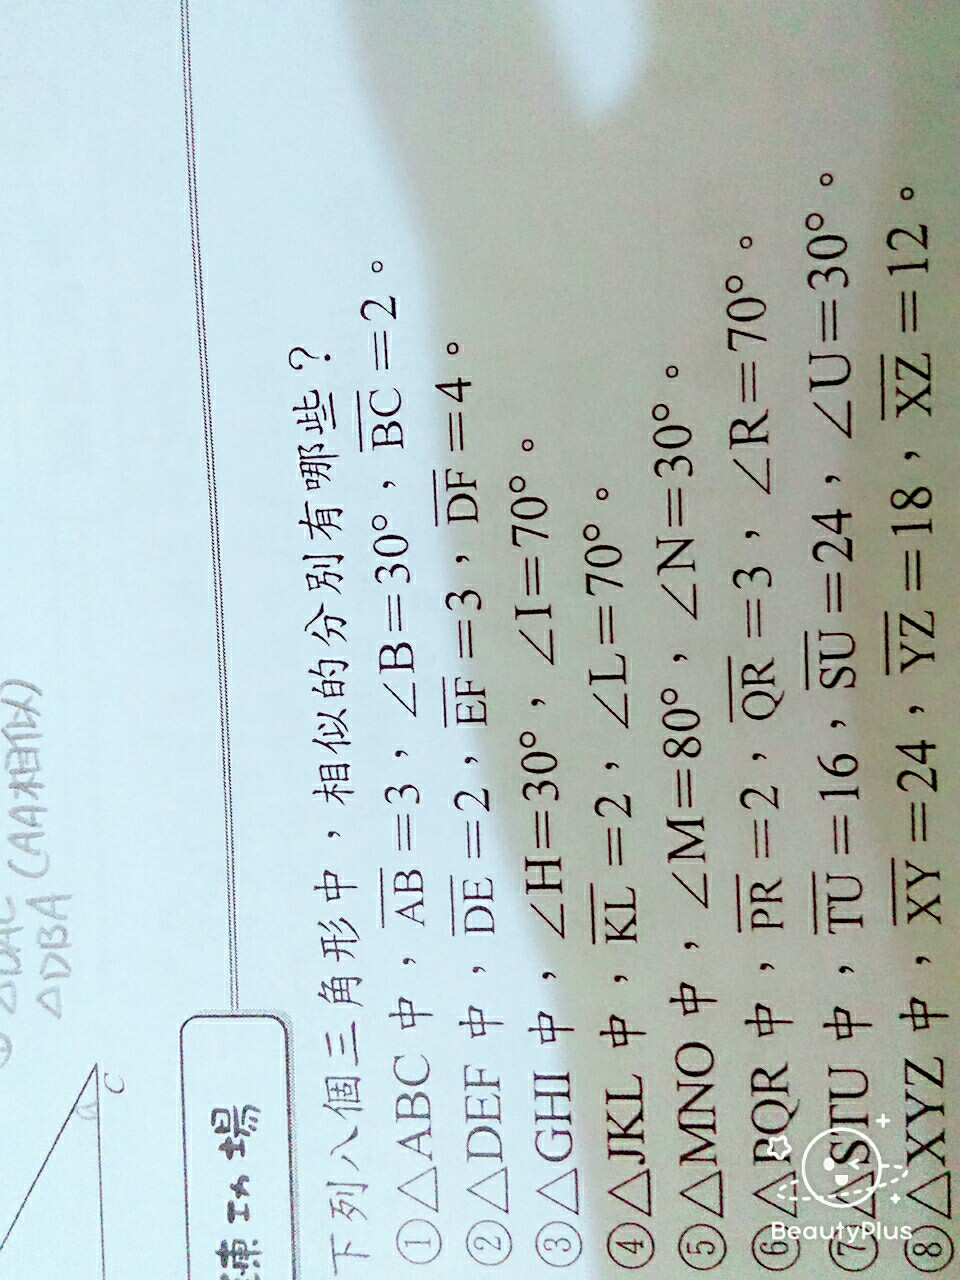 △DBA (AA相似)
C
下列八個三角形中，相似的分別有哪些？
①△ABC 中，AB=3，∠B=30°，BC=2。
②△DEF 中，DE=2，EF=3，DF=4。
③△GHI 中，∠H=30°，∠I=70°。
④△JKL 中，KL=2，∠L=70°。
⑤△MNO 中，∠M=80°，∠N=30°。
⑥△PQR 中，PR=2，QR=3，∠R=70°。
⑦△STU 中，TU=16，SU=24，∠U=30°。
⑧△XYZ 中，XY=24，YZ=18，XZ=12。
BeautyPlus